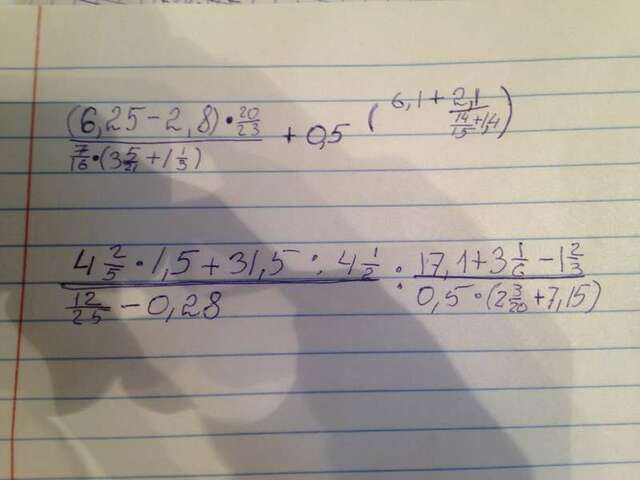 (6,25-2,8)·20/23 / 7/16·(3 5/21+1 1/3) + 0,5 (6,1+ 2,1 / 14/15+1,4)
4 2/5·1,5+31,5:4 1/2 / 12/25-0,28 : 17,1+3 1/6-1 2/3 / 0,5·(2 3/20+7,15)